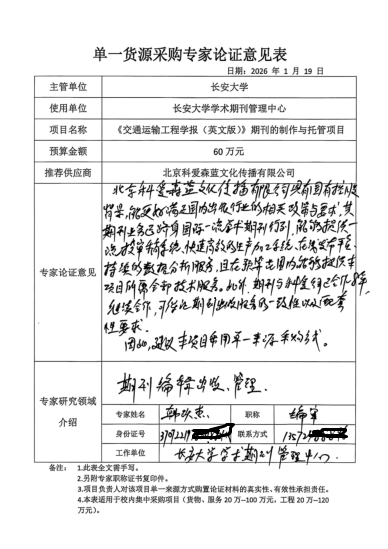 单一货源采购专家论证意见表
日期：2026 年 1 月 19 日
主管单位 长安大学
使用单位 长安大学学术期刊管理中心
项目名称 《交通运输工程学报（英文版）》期刊的制作与托管项目
预算金额 60 万元
推荐供应商 北京科爱森蓝文化传播有限公司
专家论证意见
北京科爱森蓝文化传播有限公司具有国有控股
背景，能更好满足国内出版行业的相关政策与要求，其
期刊业务已跻身国际一流学术期刊行列，能够提供一
流投审稿系统、快速高效的生产加工系统、在线发布平台、
持续的数据分析服务，且在较大范围内能够提供本
项目所需全部技术服务。此外，期刊与科爱已合作8年，
继续合作，可保证期刊出版服务的一致性以及配套
性要求。
因此，建议本项目采用单一来源采购方式。
专家研究领域
介绍
期刊编辑出版、管理.
专家姓名 职称 编审
身份证号 联系方式
工作单位 长安大学学术期刊管理中心
备注： 1.此表全文需手写。
2.另附专家职称证书复印件。
3.项目负责人对该项目单一来源方式购置论证材料的真实性、有效性承担责任。
4.本表适用于校内集中采购项目（货物、服务 20 万—100 万元，工程 20 万—120
万元）。